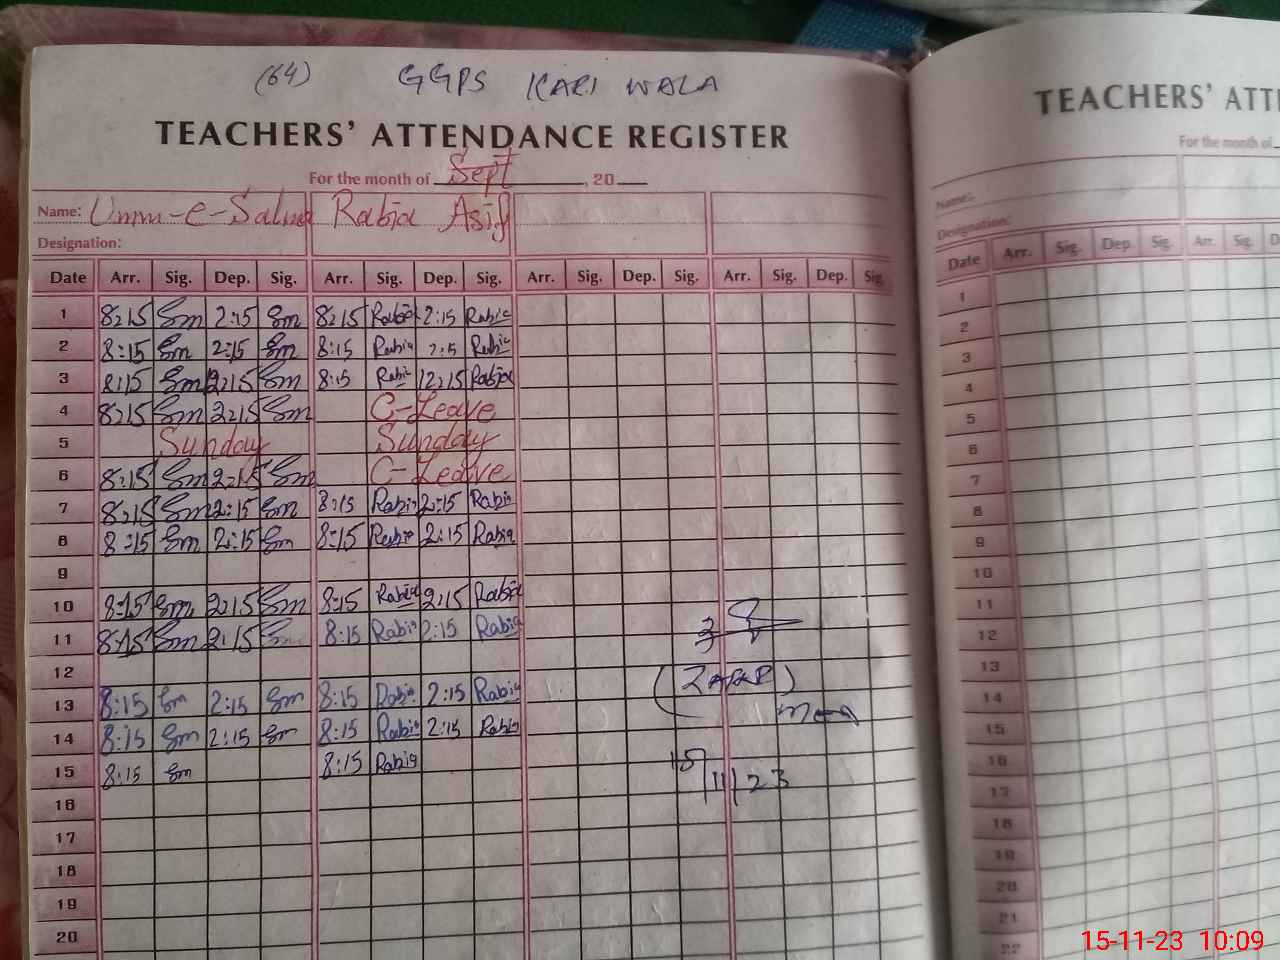 (64) GGPS KARI WALA
TEACHERS' ATTENDANCE REGISTER
For the month of Sept, 20
Name: Umm-e-Salma Rabia Asif
Designation:
Date Arr. Sig. Dep. Sig. Arr. Sig. Dep. Sig. Arr. Sig. Dep. Sig. Arr. Sig. Dep. Sig.
1 8:15 Sm 2:15 Sm 8:15 Rabia 2:15 Rabia
2 8:15 Sm 2:15 Sm 8:15 Rabia 2:5 Rabia
3 8:15 Sm 12:15 Sm 8:15 Rabia 12:15 Rabia
4 8:15 Sm 2:15 Sm C-Leave
5 Sunday Sunday
6 8:15 Sm 2:15 Sm C-Leave
7 8:15 Sm 2:15 Sm 8:15 Rabia 2:15 Rabia
8 8:15 Sm 2:15 Sm 8:15 Rabia 2:15 Rabia
9
10 8:15 Sm 2:15 Sm 8:15 Rabia 2:15 Rabia
11 8:15 Sm 2:15 Sm 8:15 Rabia 2:15 Rabia
12
13 8:15 Sm 2:15 Sm 8:15 Rabia 2:15 Rabia
14 8:15 Sm 2:15 Sm 8:15 Rabia 2:15 Rabia
15 8:15 Sm 8:15 Rabia
15/11/23
16
17
18
19
20
TEACHERS' ATT
For the month of
Name:
Designation:
Date Arr. Sig. Dep. Sig. Arr. Sig. D
1
2
3
4
5
6
7
8
9
10
11
12
13
14
15
16
17
18
19
20
21
22
15-11-23 10:09